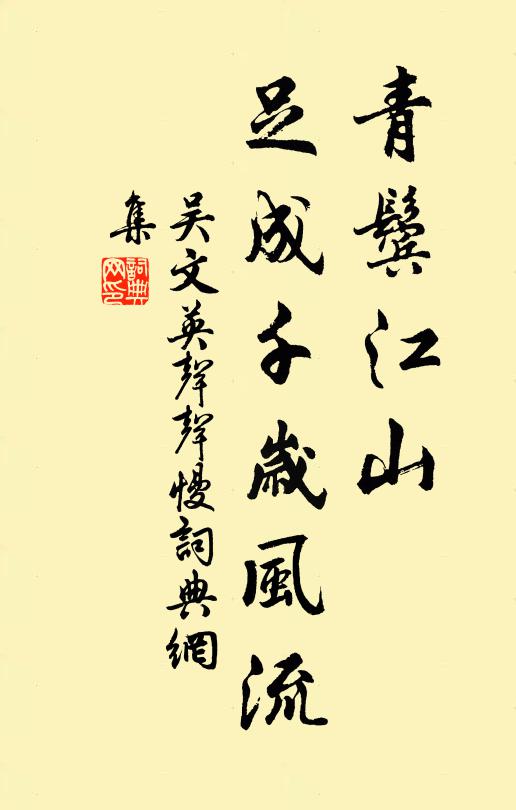 青鬓江山
足成千歲風流
吴文英聲聲慢詞典網
集
詞典网印